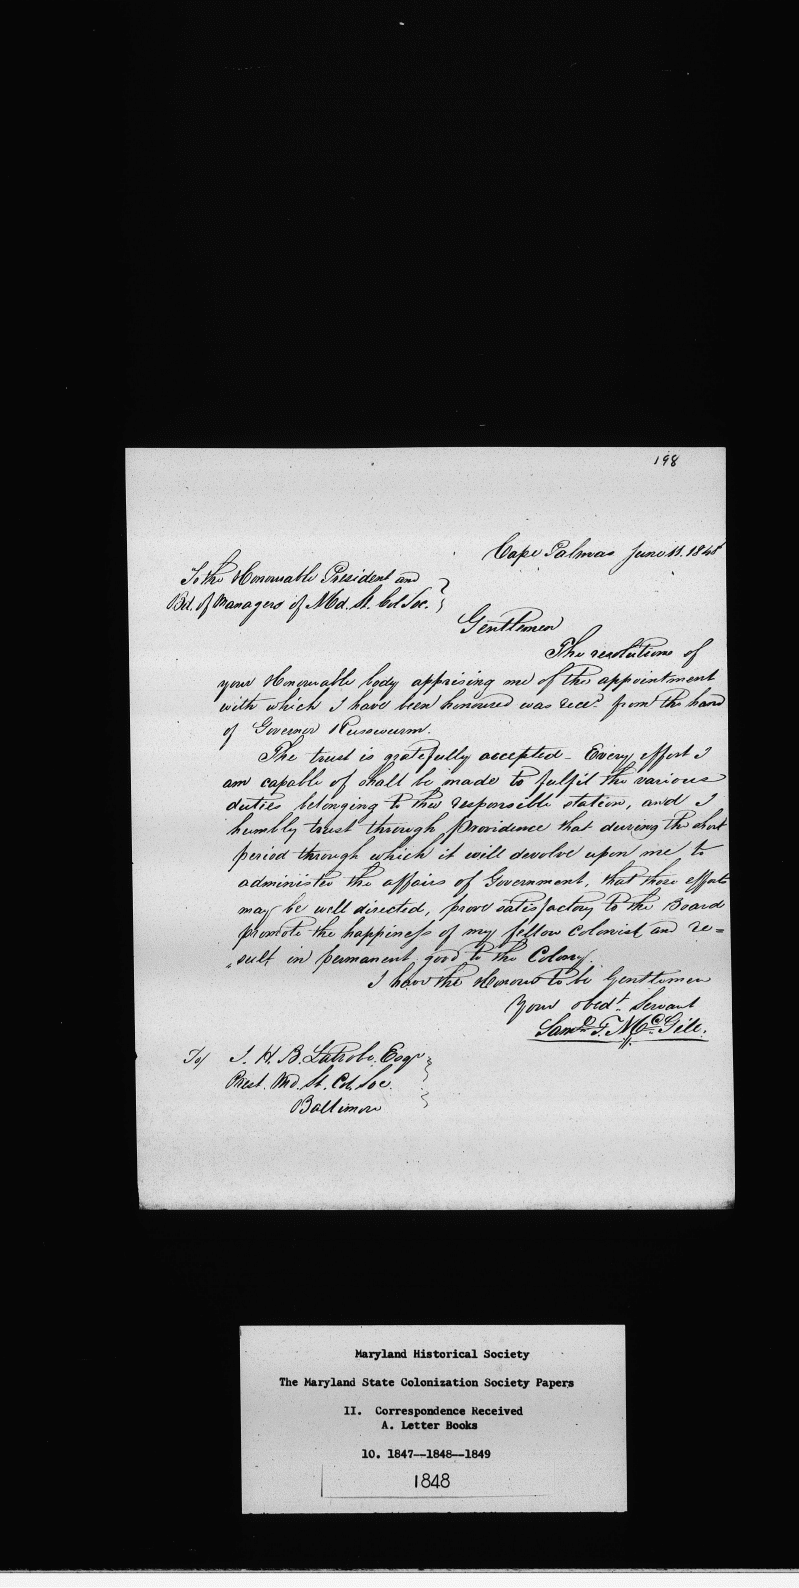 198
Cape Palmas June 11. 1848
To the Honourable President and
Bd. of Managers of Md. St. Col Soc.
Gentlemen
The resolutions of
your Honourable body apprising me of the appointment
with which I have been honoured was recd. from the hand
of Governor Russwurm.
The trust is gratefully accepted - Every effort I
am capable of shall be made to fulfil the various
duties belonging to this responsible station, and I
humbly trust through Providence that during the short
period through which it will devolve upon me to
administer the affairs of Government, that those efforts
may be well directed, prove satisfactory to the Board
promote the happiness of my fellow colonist and re=
"sult in permanent good to the Colony.
I have the Honour to be Gentlemen
Your obedt. Servant
Saml. F. McGill.
To/ J. H. B. Latrobe. Esqr
Prest. Md. St. Col. Soc.
Baltimore
Maryland Historical Society
The Maryland State Colonization Society Papers
II. Correspondence Received
A. Letter Books
10. 1847--1848--1849
1848